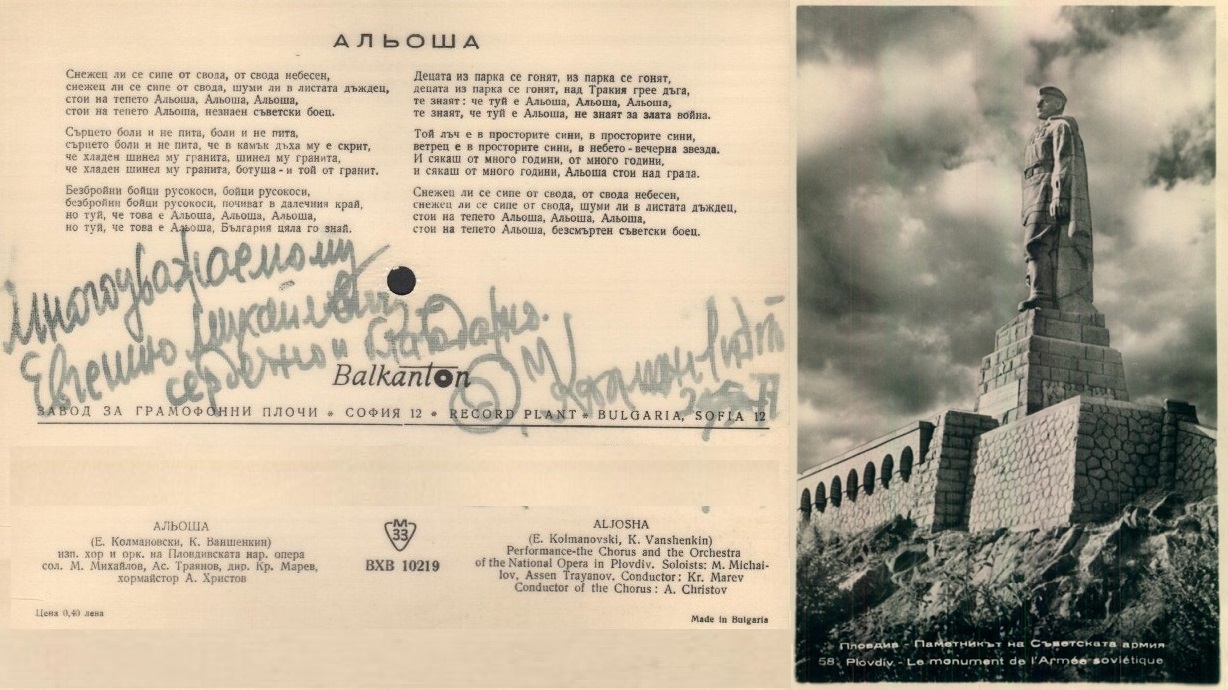 АЛЬОША
Снежец ли се сипе от свода, от свода небесен,
снежец ли се сипе от свода, шуми ли в листата дъждец,
стои на тепето Альоша, Альоша, Альоша,
стои на тепето Альоша, незнаен съветски боец.
Сърцето боли и не пита, боли и не пита,
сърцето боли и не пита, че в камък дъха му е скрит,
че хладен шинел му гранита, шинел му гранита,
че хладен шинел му гранита, ботуша - и той от гранит.
Безбройни бойци русокоси, бойци русокоси,
безбройни бойци русокоси, почиват в далечния край,
но туй, че това е Альоша, Альоша, Альоша,
но туй, че това е Альоша, България цяла го знай.
Децата из парка се гонят, из парка се гонят,
децата из парка се гонят, над Тракия грее дъга,
те знаят: че туй е Альоша, Альоша, Альоша,
те знаят, че туй е Альоша, не знаят за злата война.
Той лъч е в просторите сини, в просторите сини,
ветрец е в просторите сини, в небето - вечерна звезда.
И сякаш от много години, от много години,
и сякаш от много години, Альоша стои над града.
Снежец ли се сипе от свода, от свода небесен,
снежец ли се сипе от свода, шуми ли в листата дъждец,
стои на тепето Альоша, Альоша, Альоша,
стои на тепето Альоша, безсмъртен съветски боец.
Многоуважаемому
Евгению Михайловичу
сердечно и благодарно.
Balkanton
ЗАВОД ЗА ГРАМОФОННИ ПЛОЧИ * СОФИЯ 12 * RECORD PLANT * BULGARIA, SOFIA 12
АЛЬОША
(Е. Колмановски, К. Ваншенкин)
изп. хор и орк. на Пловдивската нар. опера
сол. М. Михайлов, Ас. Траянов, дир. Кр. Марев,
хормайстор А. Христов
Цена 0,40 лева
М
33
ВХВ 10219
ALJOSHA
(E. Kolmanovski, K. Vanshenkin)
Performance-the Chorus and the Orchestra
of the National Opera in Plovdiv. Soloists: M. Michai-
lov, Assen Trayanov. Conductor: Kr. Marev
Conductor of the Chorus: A. Christov
Made in Bulgaria
Пловдив - Паметникът на Съветската армия
58. Plovdiv - Le monument de l'Armée soviétique